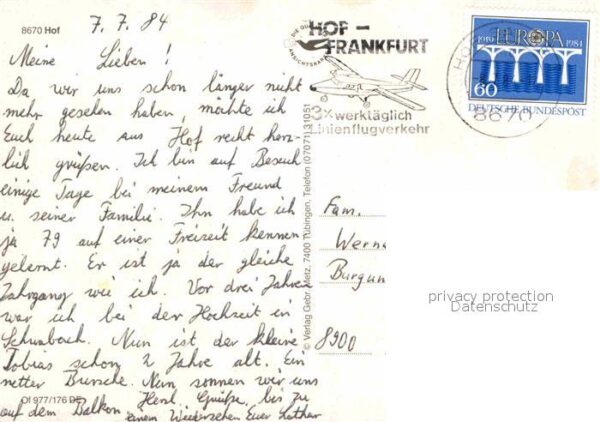 8670 Hof
7.7.84
Meine Lieben!
Da wir uns schon länger nicht
mehr gesehen haben, möchte ich
Euch heute aus Hof recht herz-
lich grüßen. Ich bin auf Besuch
einige Tage bei meinem Freund
u. seiner Familie. Ihn habe ich
ja 79 auf einer Freizeit kennen
gelernt. Er ist ja der gleiche
Jahrgang wie ich. Vor drei Jahren
war ich bei der Hochzeit in
Schwabach. Nun ist der kleine
Tobias schon 2 Jahre alt. Ein
netter Bursche. Nun sonnen wir uns
auf dem Balkon. Herzl. Grüße, bis zu
einem Wiedersehen Euer Lothar
OI 977/176 DE
© Verlag Gebr. Metz, 7400 Tübingen, Telefon (07071) 31051
HOF –
FRANKFURT
3x werktäglich
Linienflugverkehr
1959 EUROPA 1984
60
DEUTSCHE BUNDESPOST
8670
Fam.
Werne
Burgun
8900
privacy protection
Datenschutz